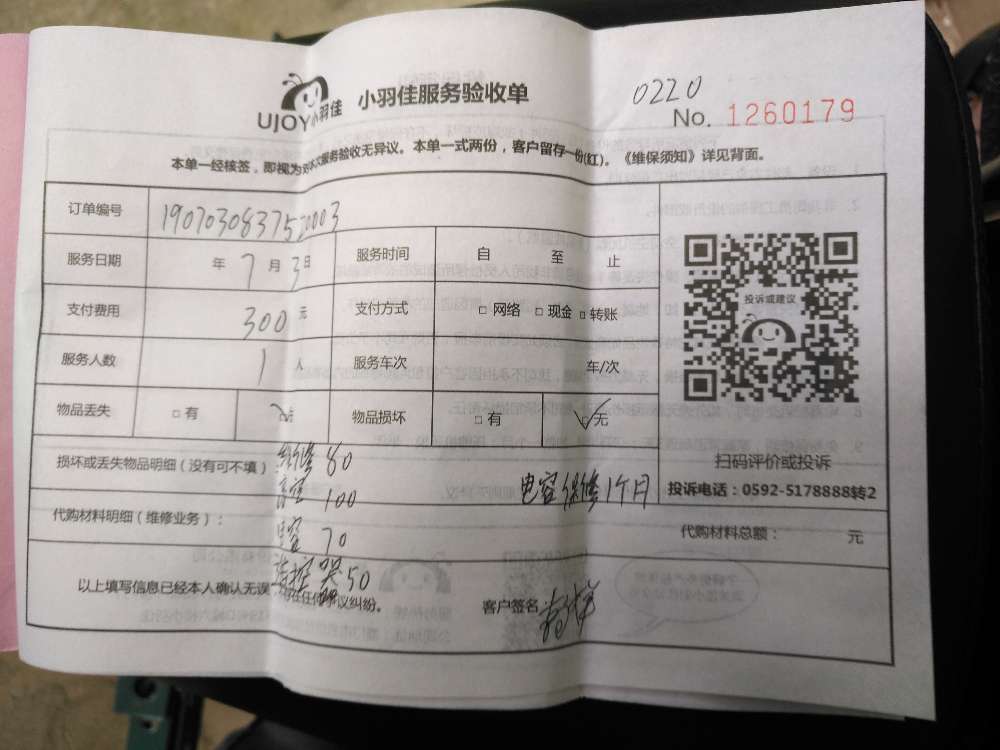 UJOY小羽佳 小羽佳服务验收单
0220
No. 1260179
本单一经核签，即视为对本次服务验收无异议。本单一式两份，客户留存一份(红)。《维保须知》详见背面。
订单编号 1907030837520003
服务日期 年 7 月 3 日 服务时间 自 至 止
支付费用 300 元 支付方式 □ 网络 □ 现金 □ 转账
服务人数 1 人 服务车次 车/次
物品丢失 □ 有 □ 无 物品损坏 □ 有 □ 无
投诉或建议
扫码评价或投诉
投诉电话：0592-5178888转2
损坏或丢失物品明细（没有可不填） 维修 80
100 电容保修1个月
代购材料明细（维修业务）： 电容 70
代购材料总额： 元
50
以上填写信息已经本人确认无误 存在任何争议纠纷。 客户签名